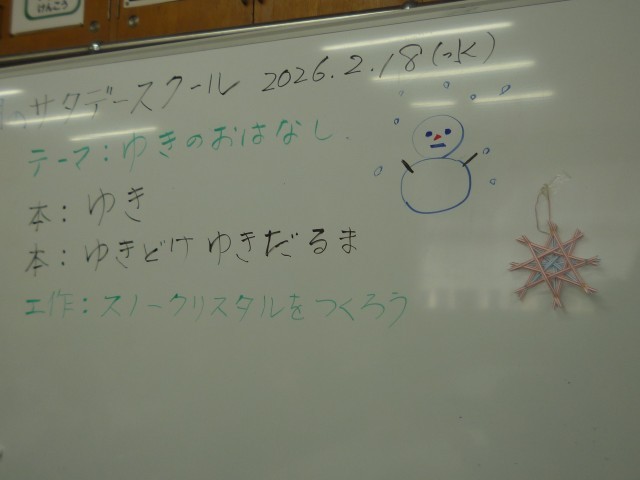 けんこう
サタデースクール 2026.2.18(水)
テーマ:ゆきのおはなし.
本:ゆき
本:ゆきどけ ゆきだるま
工作:スノークリスタルをつくろう